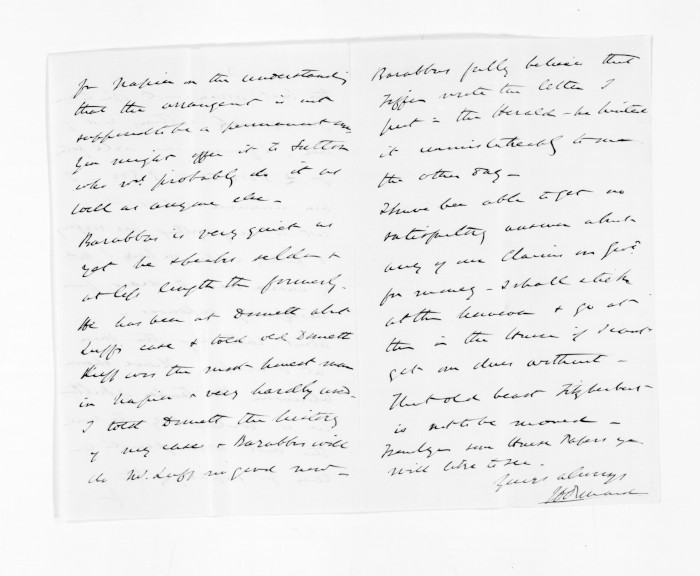 for Napier on the understanding
that the arrangent is not
supposed to be a permanent one
You might offer it to Sutton
who wd. probably do it as
well as anyone else -
Barabbas is very quiet as
yet he speaks seldom &
at less length than formerly.
He has been at Domett about
Luff's case & told old Domett
Luff was the most honest man
in Napier & very hardly used.
I told Domett the history
of my case & Barabbas will
do Mr. Luff no good now -
Barabbas fully believes that
Tiffen wrote the letter I
put in the Herald - he hinted
it unmistakeably to me
the other day -
I have been able to get no
satisfactory answer about
any of our Claims on Govt.
for money - I shall stick
at them however & go at
them in the House if I cant
get our dues without -
That old beast Fitzherbert
is not to be moved -
I send you some House Papers you
will like to see.
Yours always